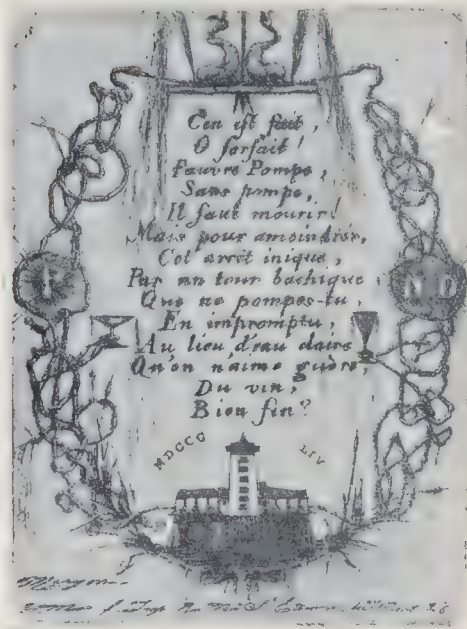 C'en est fait,
O forfait!
Pauvre Pompe,
Sans pompe,
Il faut mourir!
Mais pour amoindrir,
Cet arrêt inique,
Par un tour bachique
Que ne pompes-tu,
En impromptu,
Au lieu d'eau claire
Qu'on n'aime guère,
Du vin,
Bien fin?
MDCCC LIV